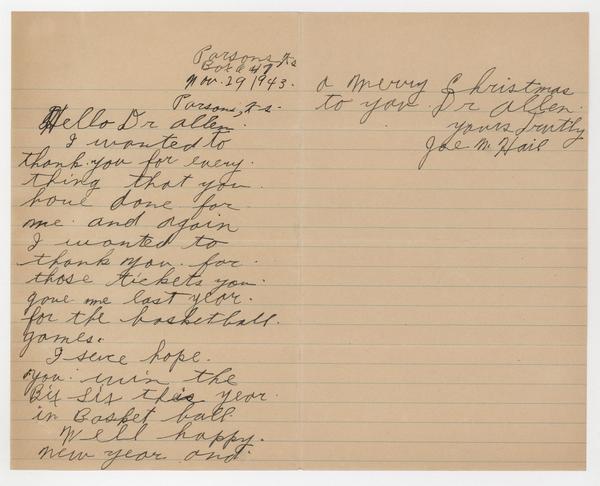 Parsons, Ks
Box 47
Nov. 29 1943.
Parsons, Ks.
Hello Dr allen.
I wanted to
thank you for every
thing that you
have done for
me. and again
I wanted to
thank you. for
those tickets you
gave me last year.
for the basketball.
games.
I sure hope.
you win the
Bix Six this year.
in Basket ball.
Well happy.
new year and
a Merry Christmas
to you. Dr allen.
yours truthly
Joe M. Hail